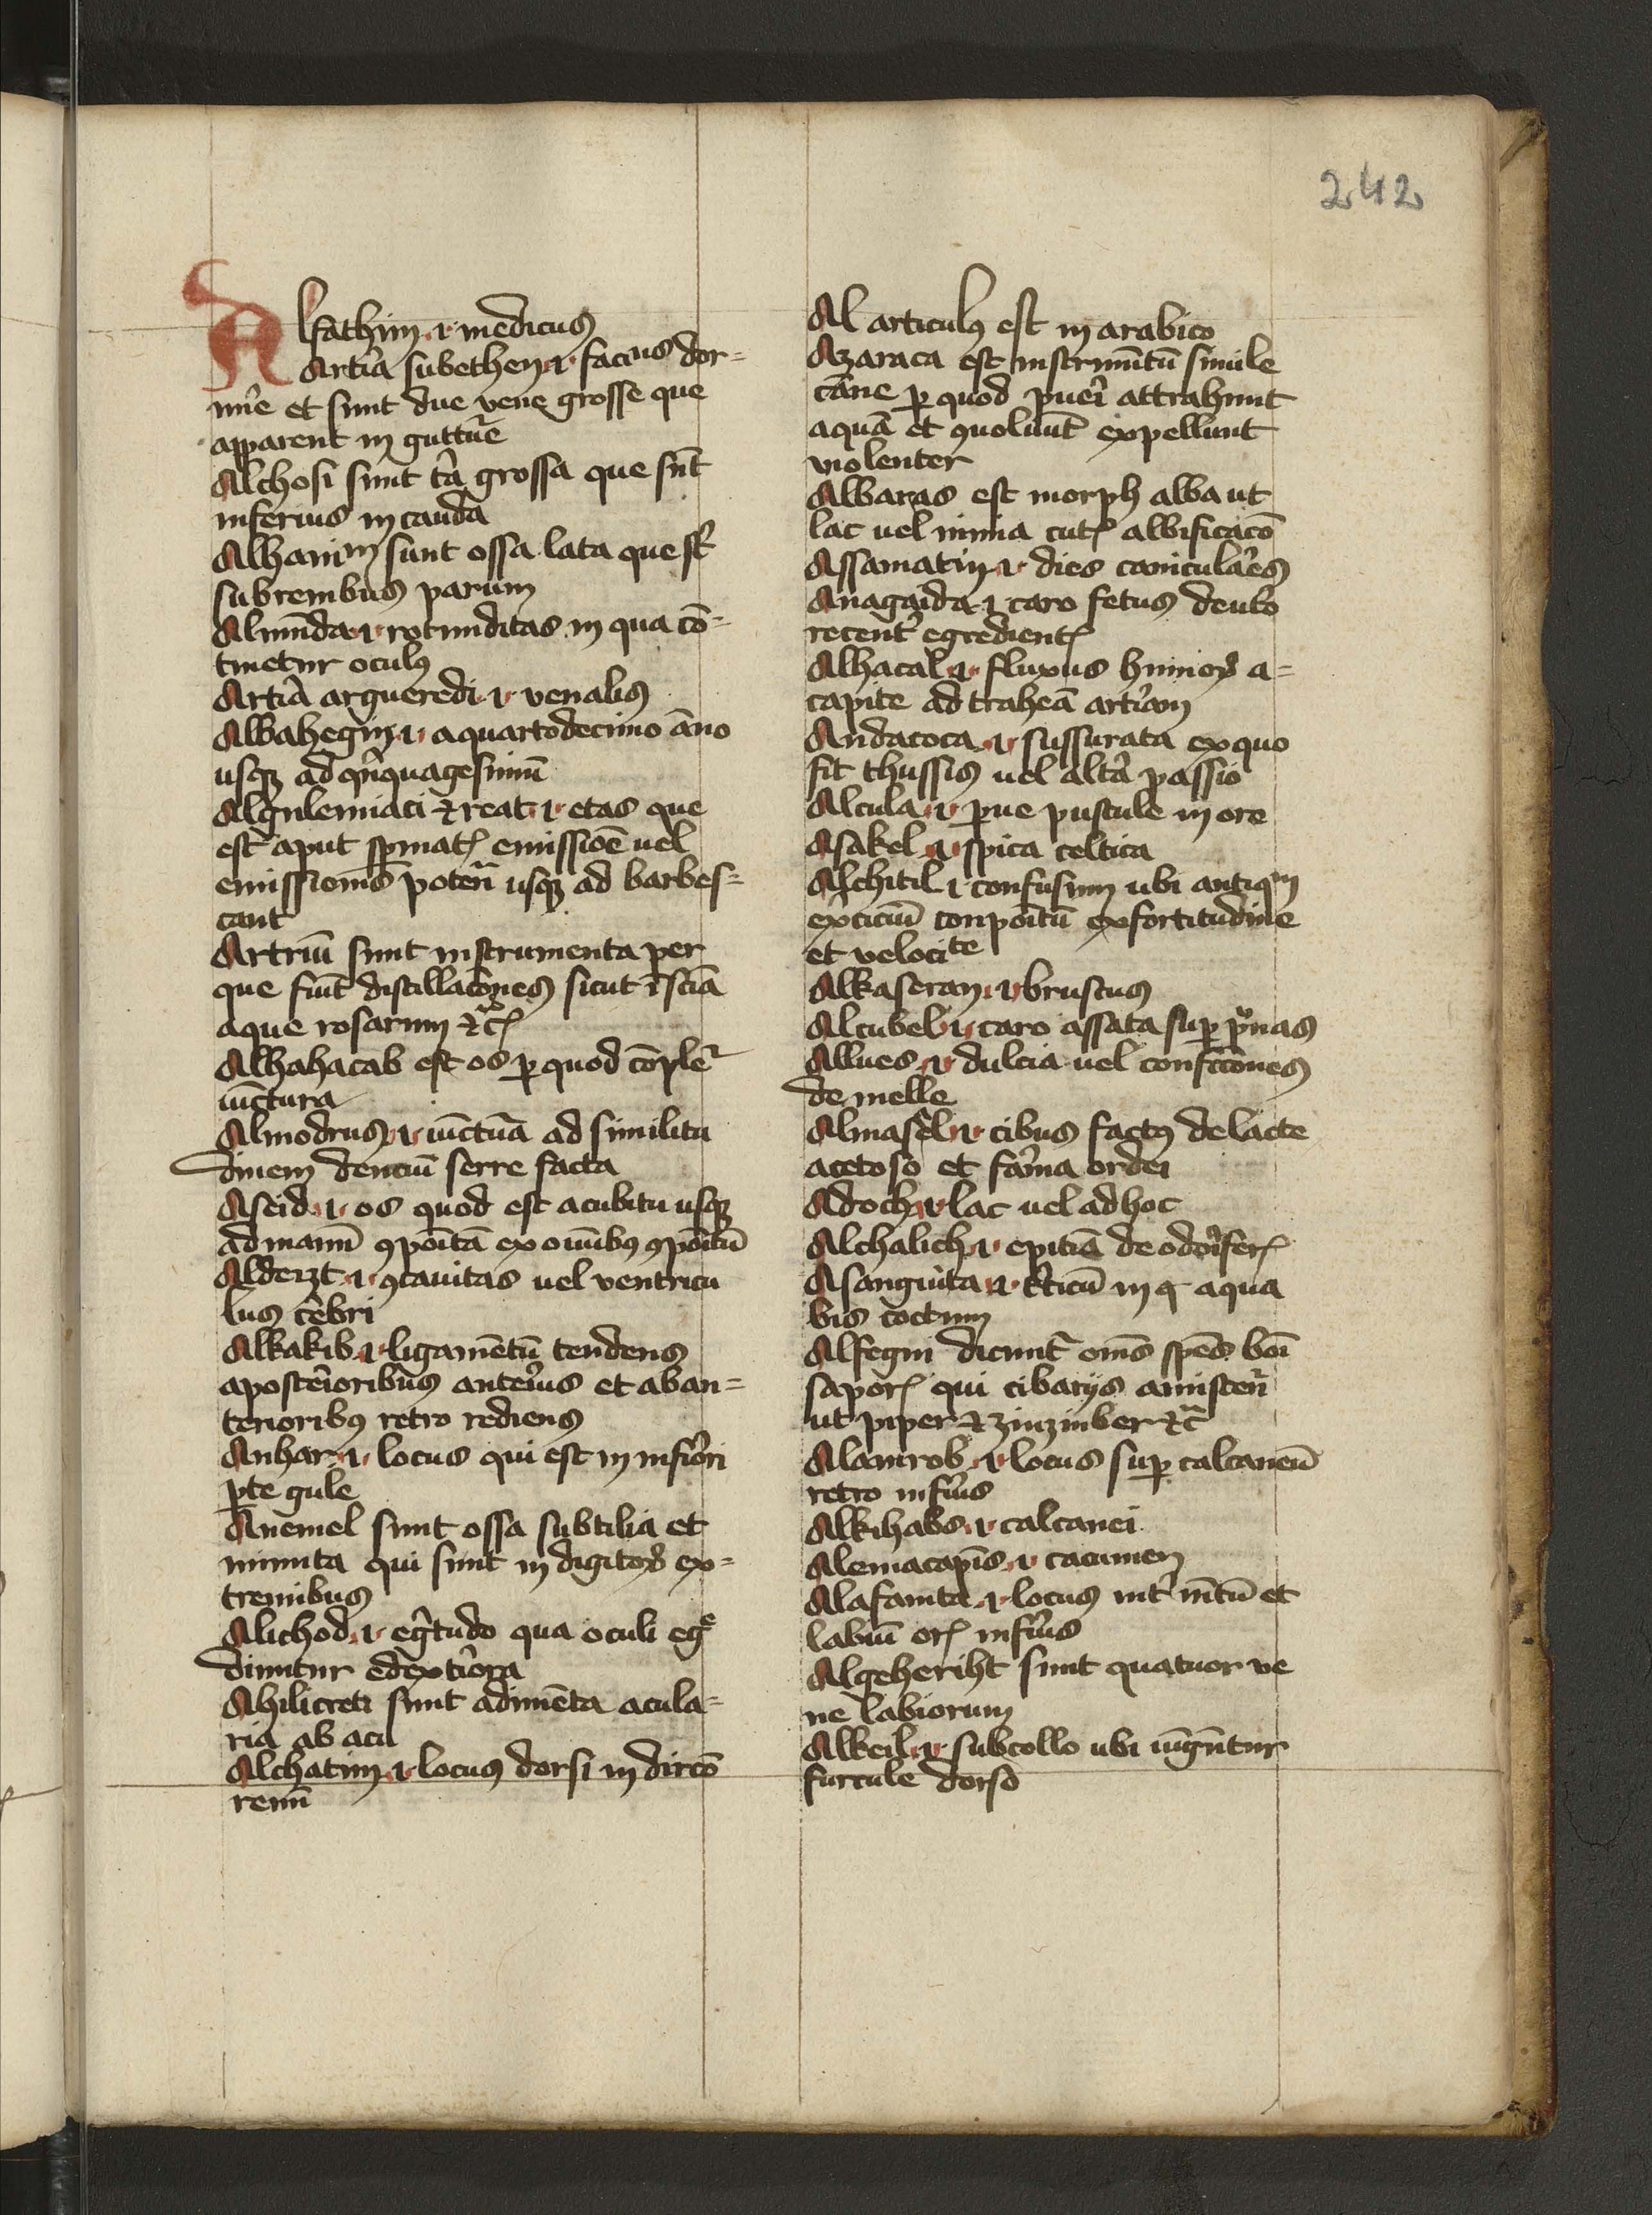 242
Alfathim .i. medicus
Artīa subethen .i. faciens dor-
mīe et sunt due vene grosse que
apparent in guttūe
Alchosi sunt tīa grossa que sūt
inferius in cauda
Alhanim sunt ossa lata que st
sub renibus parum
Almūda .i. rotunditas in qua cō-
tinetur oculꝰ
Artīa argueredi .i. venalis
Albahegin .i. a quartodecimo āno
usqꝫ ad qīnquagesimū
Algulemiaci ⁊ reat .i. etas que
est aput spmatꝭ emissiōe uel
emissionīs poten̄ usqꝫ ad barbes-
cant
Artriū sunt instrumenta per
que fiūt distillacōnes sicut
aque rosarum ⁊cꝭ
Alhahacab est os ꝑ quod cōplet̄
iūctura
Almodrus .i. iūctūa ad similitu
dinem denciū serre facta
Aseid .i. os quod est a cubitu usqꝫ
ad manū ꝯpoītā ex omībꝰ ꝯpoītū
Alderzt .i. ꝯcauitas uel ventricu
lus cēbri
Alkakib .i. ligamētū tendens
a posteīoribus anteīus et ab an-
terioribꝰ retro rediens
Anhar .i. locus qui est in infīori
ꝑte gule
Anemel sunt ossa subtilia et
minuta qui sunt in digitoꝝ ex-
tremibus
Alichod .i. egītudo qua oculi eg̊
diuntur ad extīora
Ahilicreti sunt adimēta acula-
ria ab acu
Alchatim .i. locus dorsi in dircō
renū
Al articulꝰ est in arabico
Azaraca est instrumētū simile
cāne ꝑ quod pueī attrahunt
aquā et ꝯuoluūt expellunt
violenter
Albaras est morph alba ut
lac uel nimia cutꝭ albificacō
Assamatin .i. dies caniculāes
Anagaida .i. caro fetus de ubo
recent̄ egredientꝭ
Alhacal .i. fluxus humoꝝ a-
capite ad traheā artīam
Andacoca .i. sussurata ex quo
fit thussis uel altā passio
Alcula .i. ꝑue pustule in ore
Asakel .i. spica celtica
Alchitil .i. confusum ubi antiqm
exīciciū conpoītū ex fortitudine
et velocite
Alkaseran .i. bruscus
Alcubel .i. caro assata suꝑ pͦnas
Allues .i. dulcia uel confccōnes
de melle
Almasēl .i. cibus factꝰ de lacte
acetoso et faīna ordei
Adoch .i. lac uel adhoc
Alchalich .i. epitiā de odoīferꝭ
Asanguita .i. tīticū in q aqua
bis coctum
Alfegni dicunt̄ om̄s spēs boī
saporꝭ qui cibarijs amisten̄
ut piper ⁊ zinziber ⁊c̄
Alamrob .i. locus suꝑ calcaneū
retro infīus
Alkihabs .i. calcanei
Alemacapīs .i. cacumen
Alafanita .i. locus int̄ mētū et
labiū orꝭ infīus
Algeheriht sunt quatuor ve
ne labiorum
Alkeil .i. sub collo ubi iūgūntur
furcule dorso